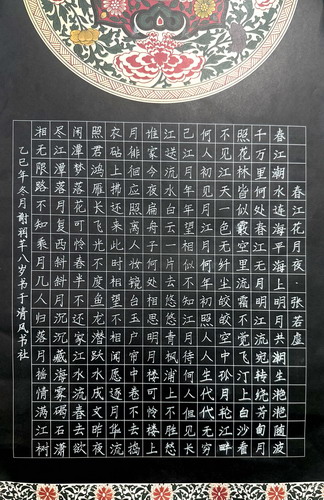 春江花月夜·张若虚
春江潮水连海平海上明月共潮生滟滟随波
千万里何处春江无月明江流宛转绕芳甸月
照花林皆似霰空里流霜不觉飞汀上白沙看
不见江天一色无纤尘皎皎空中孤月轮江畔
何人初见月江月何年初照人人生代代无穷
已江月年年望相似不知江月待何人但见长
江送流水白云一片去悠悠青枫浦上不胜愁
谁家今夜扁舟子何处相思明月楼可怜楼上
月徘徊应照离人妆镜台玉户帘中卷不去捣
衣砧上拂还来此时相望不相闻愿逐月华流
照君鸿雁长飞光不度鱼龙潜跃水成文昨夜
闲潭梦落花可怜春半不还家江水流春去欲
尽江潭落月复西斜斜月沉沉藏海雾碣石潇
湘无限路不知乘月几人归落月摇情满江树
乙巳年冬月谢芊八岁书于清风书社